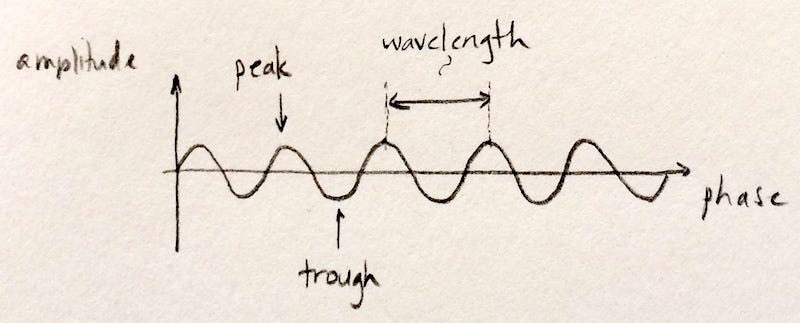 amplitude
peak
wavelength
phase
trough